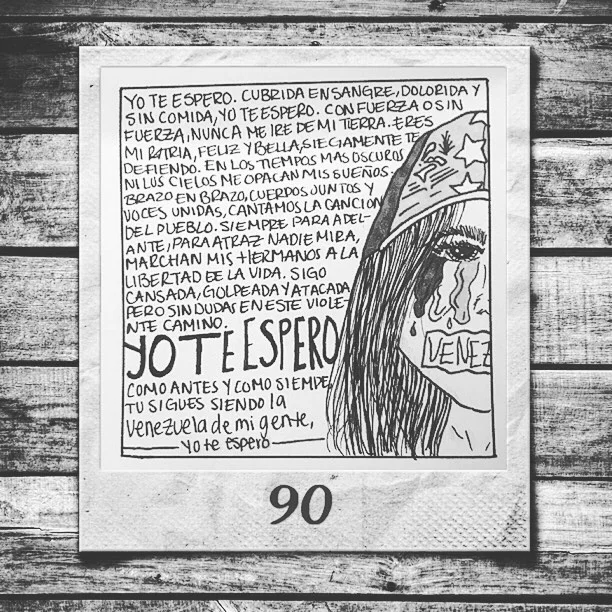 YO TE ESPERO. CUBRIDA EN SANGRE, DOLORIDA Y
SIN COMIDA, YO TE ESPERO. CON FUERZA O SIN
FUERZA, NUNCA ME IRE DE MI TIERRA. ERES
MI PATRIA, FELIZ Y BELLA, SIEGIAMENTE TE
DEFIENDO. EN LOS TIEMPOS MAS OSCUROS
NI LUS CIELOS ME OPACAN MIS SUEÑOS.
BRAZO EN BRAZO, CUERPOS JUNTOS Y
VOCES UNIDAS, CANTAMOS LA CANCION
DEL PUEBLO. SIEMPRE PARA ADEL-
ANTE, PARA ATRAZ NADIE MIRA,
MARCHAN MIS HERMANOS A LA
LIBERTAD DE LA VIDA. SIGO
CANSADA, GOLPEADA Y ATACADA
PERO SIN DUDAS EN ESTE VIOLE-
NTE CAMINO.
YO TE ESPERO
COMO ANTES Y COMO SIEMPE,
TU SIGUES SIENDO la
Venezuela de mi gente,
yo te espero
VENEZ
90